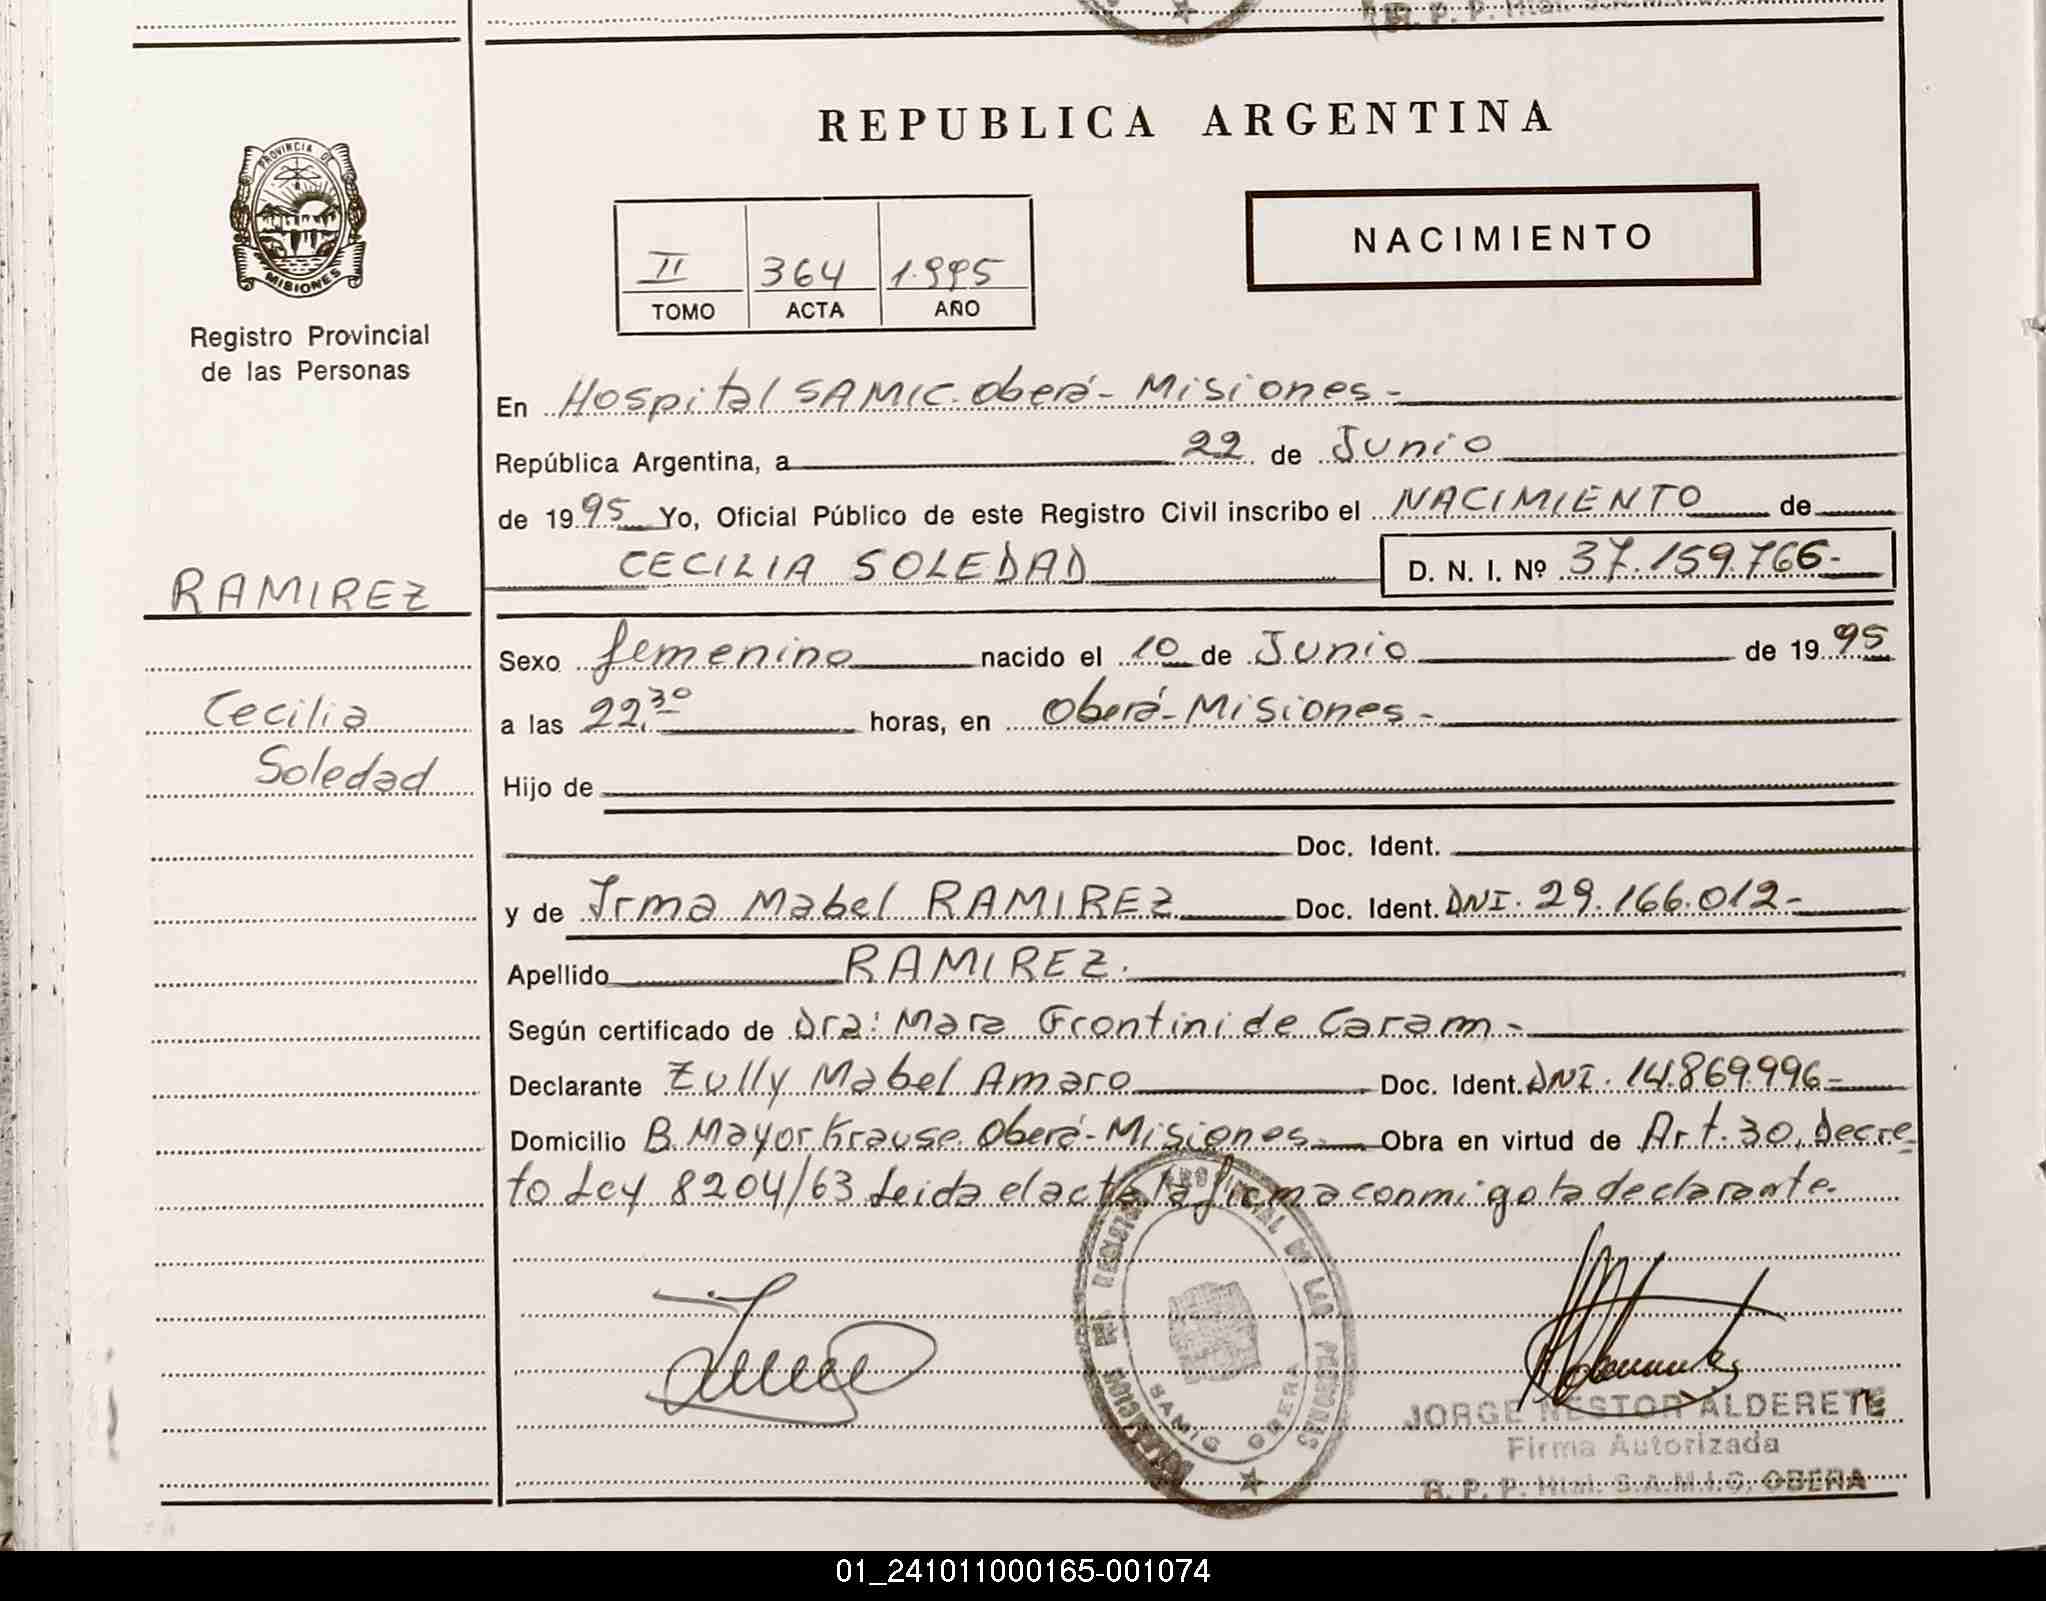 PROVINCIA DE
MISIONES
Registro Provincial
de las Personas
RAMIREZ
Cecilia
Soledad
REPUBLICA ARGENTINA
II 364 1.995
TOMO ACTA AÑO
NACIMIENTO
En Hospital SAMIC. Oberá - Misiones -
República Argentina, a 22 de Junio
de 1995 Yo, Oficial Público de este Registro Civil inscribo el NACIMIENTO de
CECILIA SOLEDAD D. N. I. Nº 37.159.766-
Sexo femenino nacido el 10 de Junio de 1995
a las 22.30 horas, en Oberá - Misiones -
Hijo de
Doc. Ident.
y de Irma Mabel RAMIREZ Doc. Ident. DNI. 29.166.012-
Apellido RAMIREZ.
Según certificado de Dra: Mara Frontini de Caram -
Declarante Zully Mabel Amaro Doc. Ident. DNI. 14.869.996-
Domicilio B. Mayor Krause. Oberá - Misiones. Obra en virtud de Art. 30, Decre-
to Ley 8204/63 Leida el acta la firma conmigo la declarante.
SAMIC OBERA
JORGE NESTOR ALDERETE
Firma Autorizada
R. P. P. Htal. S.A.M.I.C. OBERA
01_241011000165-001074